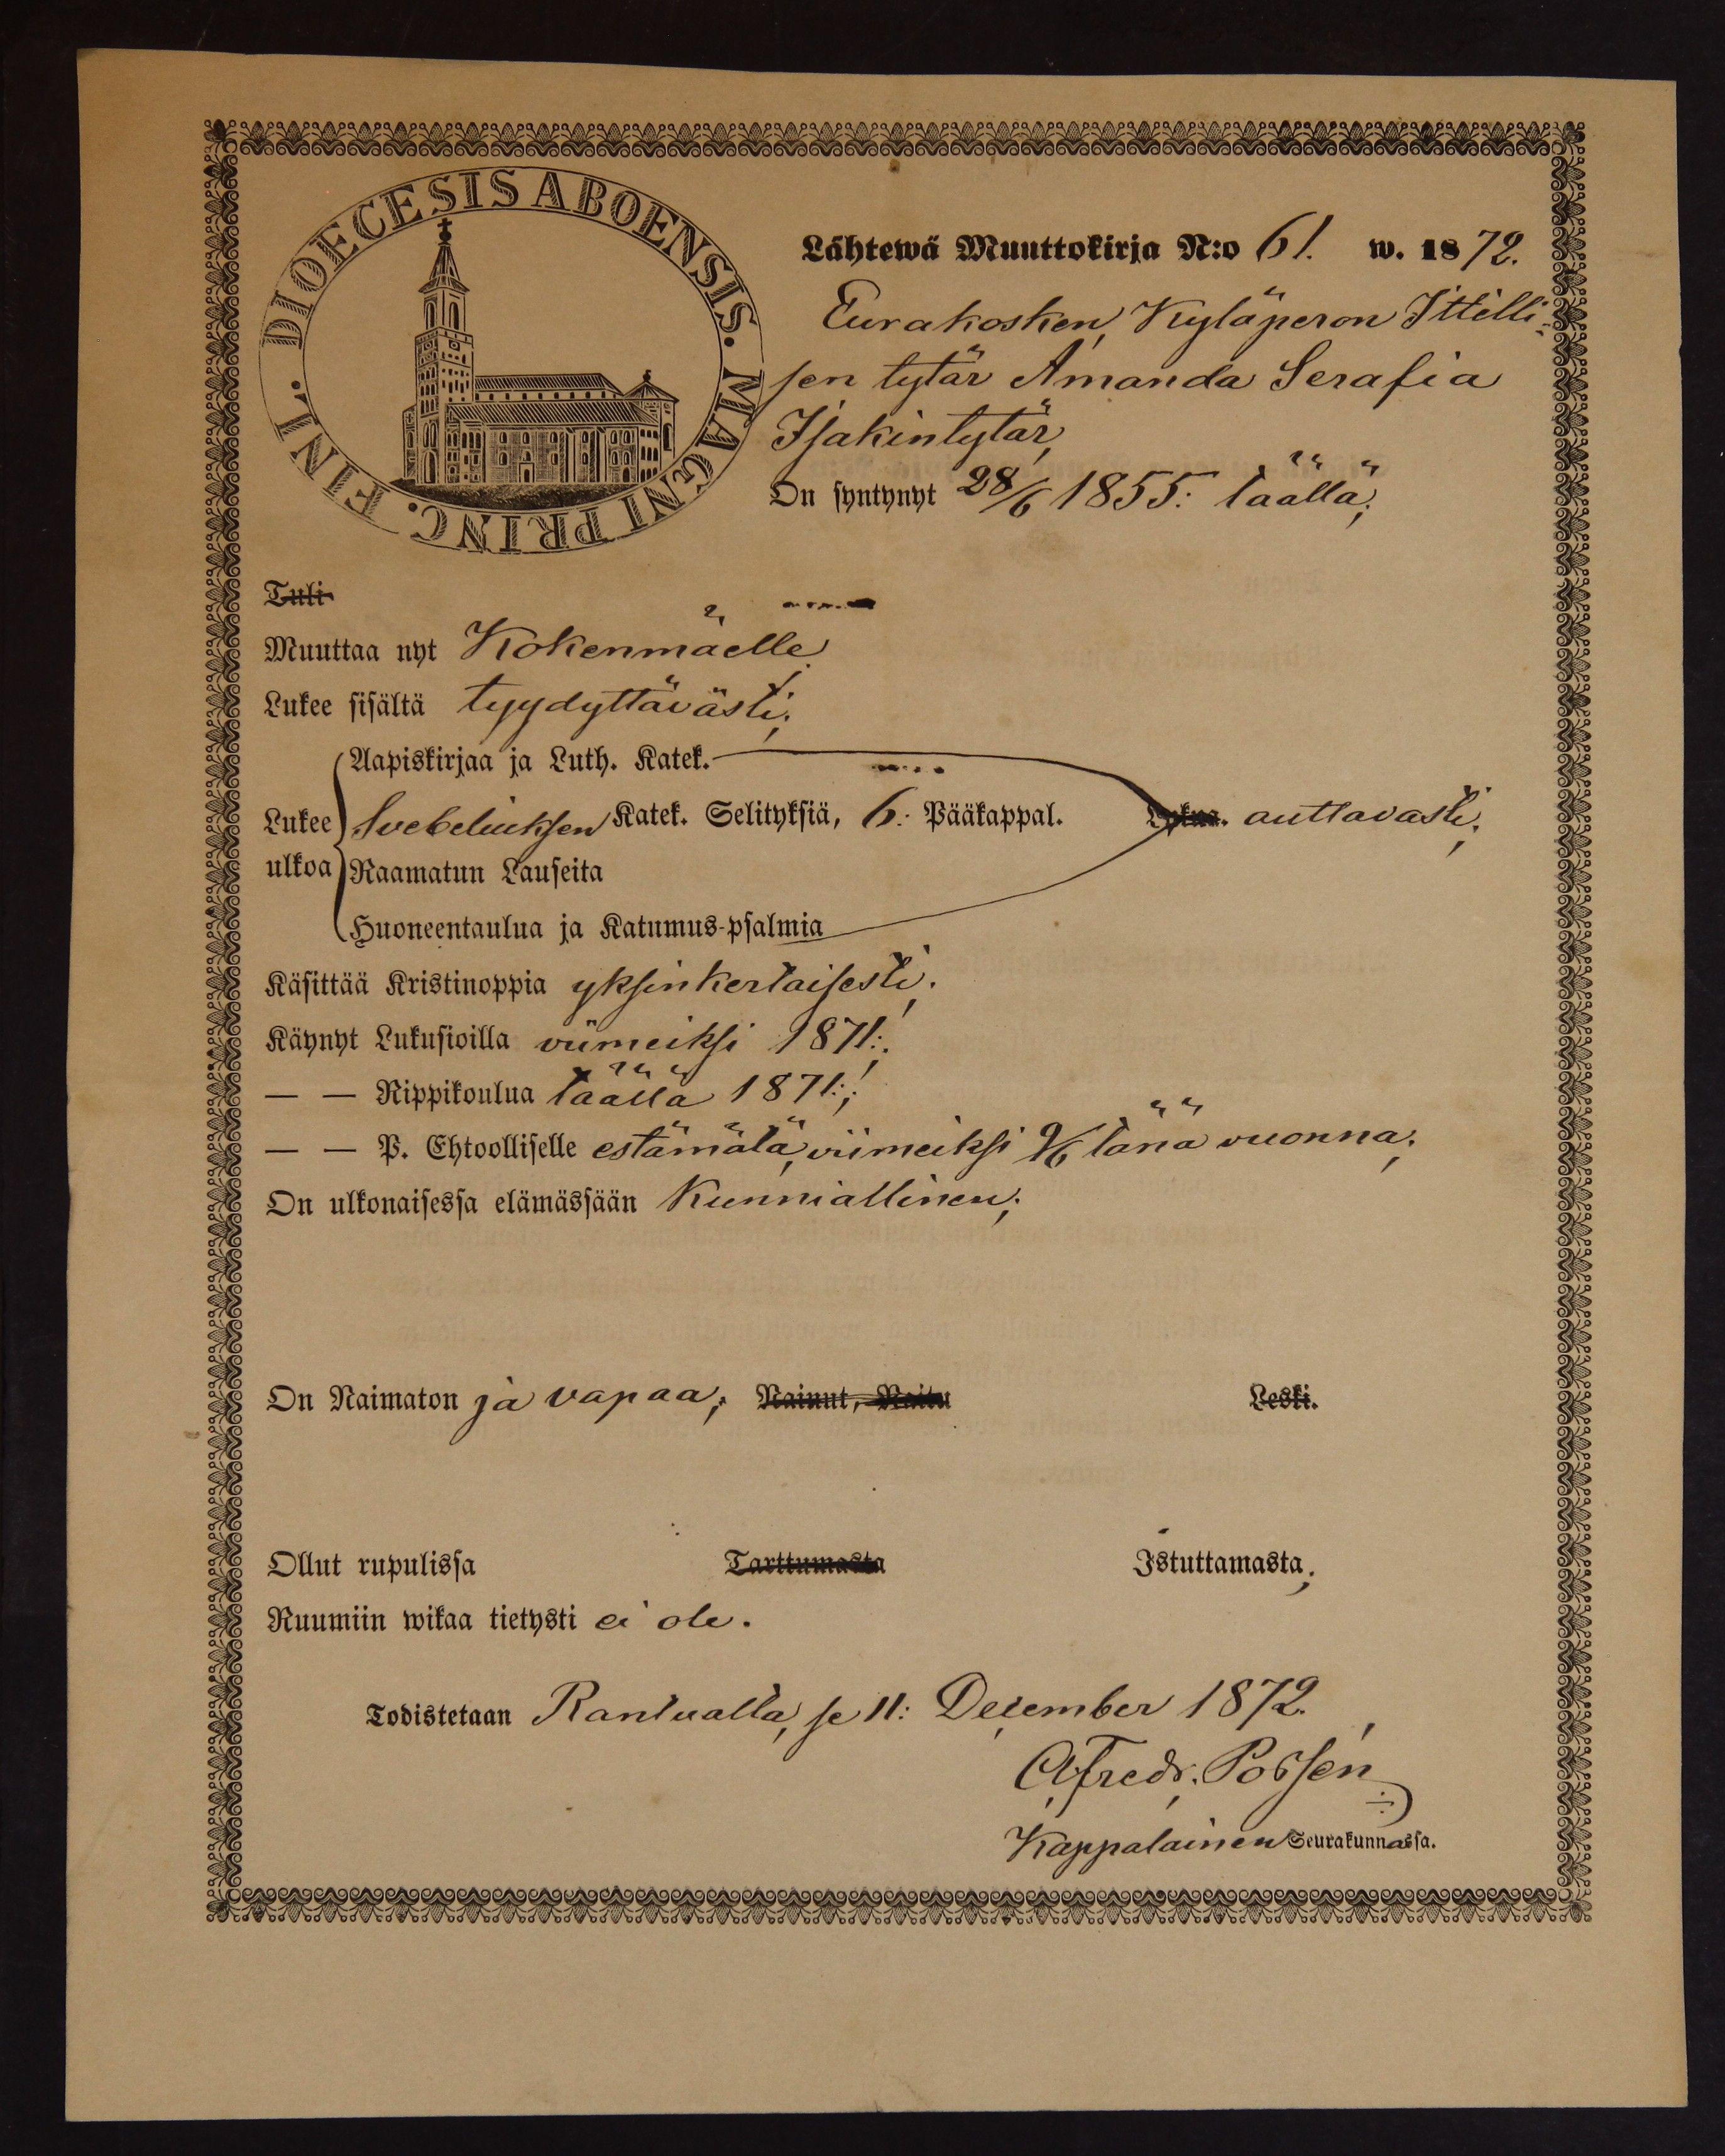 DIOECESIS ABOENSIS. MAGNI PRINC. FINL.
Lähtewä Muuttokirja N:o 61. w. 1872.
Eurakosken, Kyläperon Ittelli-
sen tytär Amanda Serafia
Isakintytär,
On syntynyt 28/6 1855: täällä;
Tuli
Muuttaa nyt Kokenmäelle.
Lukee sisältä tyydyttävästi;
Aapiskirjaa ja Luth. Katek.
Lukee ulkoa Svebeliuksen Katek. Selityksiä, 6: Pääkappal. Lukua. auttavasti;
Raamatun Lauseita
Huoneentaulua ja Katumus-psalmia
Käsittää Kristinoppia yksinkertaisesti;
Käynyt Lukusioilla viimeiksi 1871:;
— — Rippikoulua täällä 1871:;
— — P. Ehtoolliselle estämätä, viimeiksi 9/6 tänä vuonna;
On ulkonaisessa elämässään kunniallinen;
On Naimaton ja vapaa; Nainut, Naitu Leski.
Ollut rupulissa Tarttumasta Istuttamasta;
Ruumiin wikaa tietysti ei ole.
Todistetaan Rantualla, se 11: December 1872.
A. Fredr. Possén
Kappalainen Seurakunnassa.